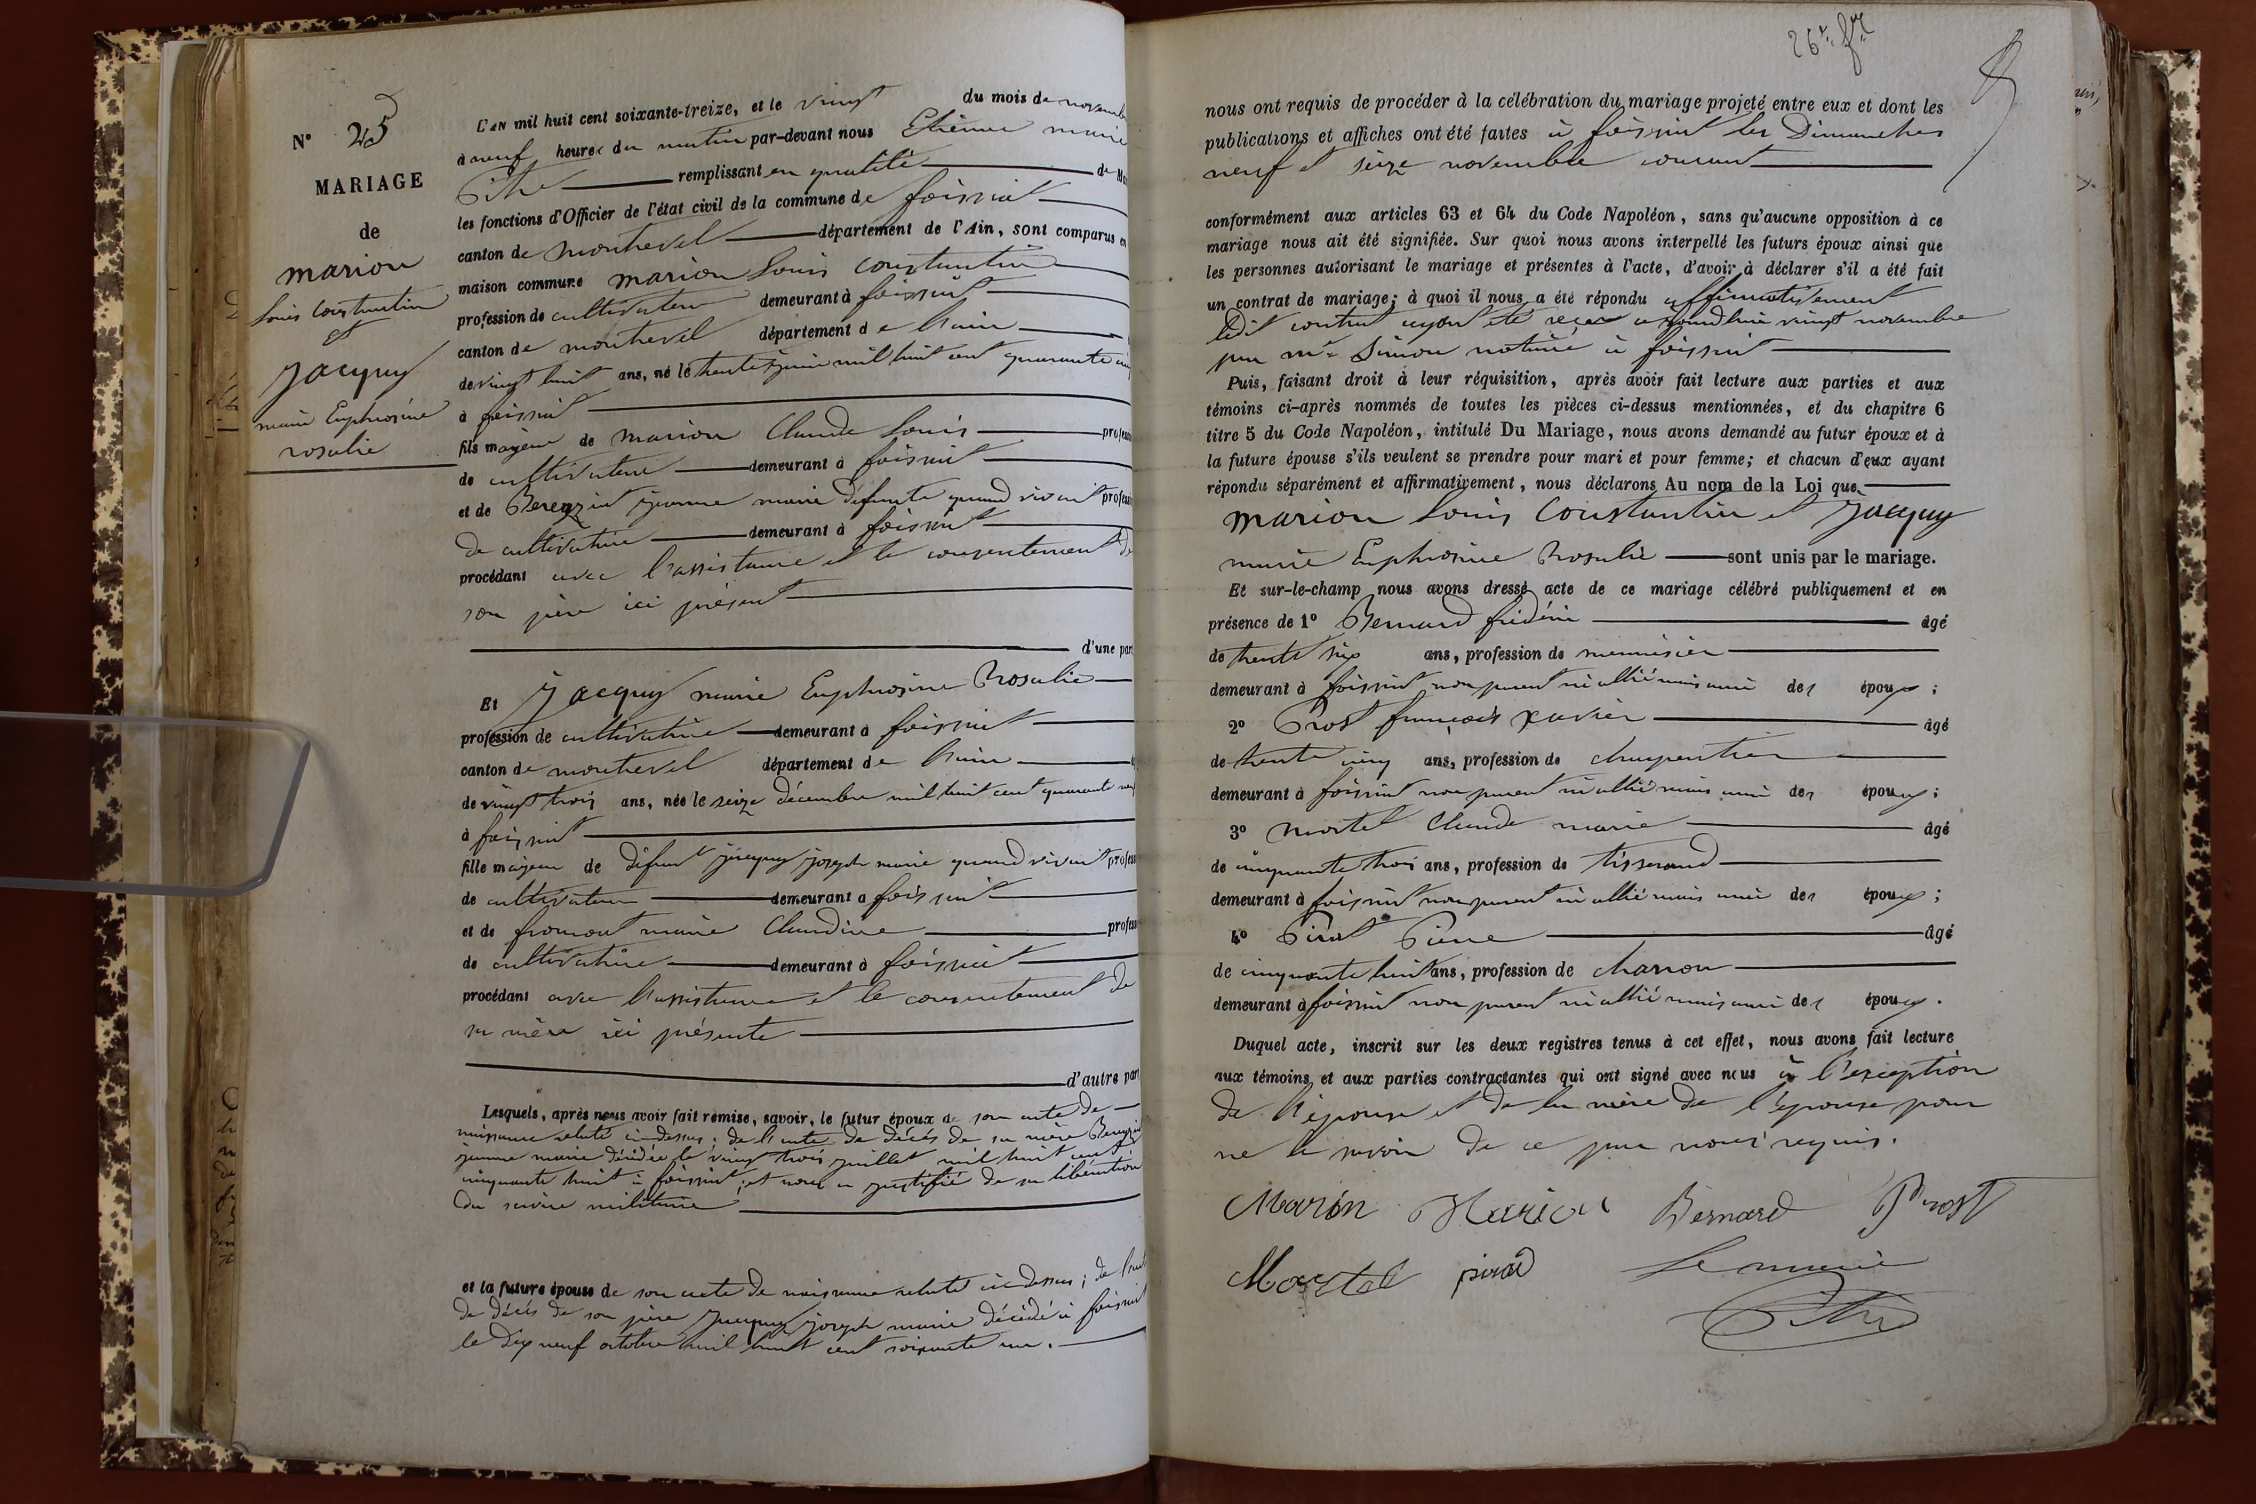 N° 25
MARIAGE
de
marion
Louis Constantin
et
Jacquy
marie Euphrosine
rosalie
L'AN mil huit cent soixante-treize, et le vingt du mois de novembre
à neuf heures du matin par-devant nous Etienne marie
Pitre remplissant en qualité de
les fonctions d'Officier de l'état civil de la commune de foissiat
canton de montrevel département de l'Ain, sont comparus en
maison commune marion Louis constantin
profession de cultivateur demeurant à foissiat
canton de montrevel département de l'ain
de vingt huit ans, né le trente juin mil huit cent quarante cinq
à foissiat
fils majeur de marion Claude Louis
de cultivateur demeurant à foissiat
et de Bereyziat jeanne marie défunte quand vivait
de cultivatrice demeurant à foissiat
procédant avec l'assistance et le consentement de
son père ici présent
d'une part
Et Jacquy marie Euphrosine Rosalie
profession de cultivatrice demeurant à foissiat
canton de montrevel département de l'ain
de vingt trois ans, née le seize décembre mil huit cent quarante neuf
à foissiat
fille majeure de défunt jacquy joseph marie quand vivait
de cultivateur demeurant a foissiat
et de fromont marie Claudine
de cultivatrice demeurant à foissiat
procédant avec l'assistance et le consentement de
sa mère ici présente
d'autre part
Lesquels, après nous avoir fait remise, savoir, le futur époux de son acte de
naissance relaté ci-dessus ; de l'acte de décès de sa mère Bereyziat
jeanne marie décédée le vingt trois juillet mil huit cent
cinquante huit à foissiat ; et nous a justifié de sa libération
du service militaire
et la future épouse de son acte de naissance relaté ci-dessus ; de l'acte
de décès de son père Jacquy joseph marie décédé à foissiat
le dix neuf octobre mil huit cent soixante un.
26 fr
nous ont requis de procéder à la célébration du mariage projeté entre eux et dont les
publications et affiches ont été faites à foissiat les Dimanches
neuf et seize novembre courant
conformément aux articles 63 et 64 du Code Napoléon, sans qu'aucune opposition à ce
mariage nous ait été signifiée. Sur quoi nous avons interpellé les futurs époux ainsi que
les personnes autorisant le mariage et présentes à l'acte, d'avoir à déclarer s'il a été fait
un contrat de mariage ; à quoi il nous a été répondu affirmativement
ledit contrat ayant été reçu aujourd'hui vingt novembre
par me Simon notaire à foissiat
Puis, faisant droit à leur réquisition, après avoir fait lecture aux parties et aux
témoins ci-après nommés de toutes les pièces ci-dessus mentionnées, et du chapitre 6
titre 5 du Code Napoléon, intitulé Du Mariage, nous avons demandé au futur époux et à
la future épouse s'ils veulent se prendre pour mari et pour femme; et chacun d'eux ayant
répondu séparément et affirmativement, nous déclarons Au nom de la Loi que
marion Louis Constantin et Jacquy
marie Euphrosine Rosalie sont unis par le mariage.
Et sur-le-champ nous avons dressé acte de ce mariage célébré publiquement et en
présence de 1° Bernard frédéric âgé
de trente six ans, profession de menuisier
demeurant à foissiat non parent ni allié mais ami des époux ;
2° Prost françois xavier âgé
de trente cinq ans, profession de charpentier
demeurant à foissiat non parent ni allié mais ami des époux ;
3° mortel Claude marie âgé
de cinquante trois ans, profession de tisserand
demeurant à foissiat non parent ni allié mais ami des époux ;
4° Pirat Pierre âgé
de cinquante huit ans, profession de charron
demeurant à foissiat non parent ni allié mais ami des époux.
Duquel acte, inscrit sur les deux registres tenus à cet effet, nous avons fait lecture
aux témoins et aux parties contractantes qui ont signé avec nous à l'exception
de l'épouse et de la mère de l'épouse pour
ne le savoir de ce par nous requis.
Marion Marion Bernard Prost
Mortel pirat Le maire
Pitre